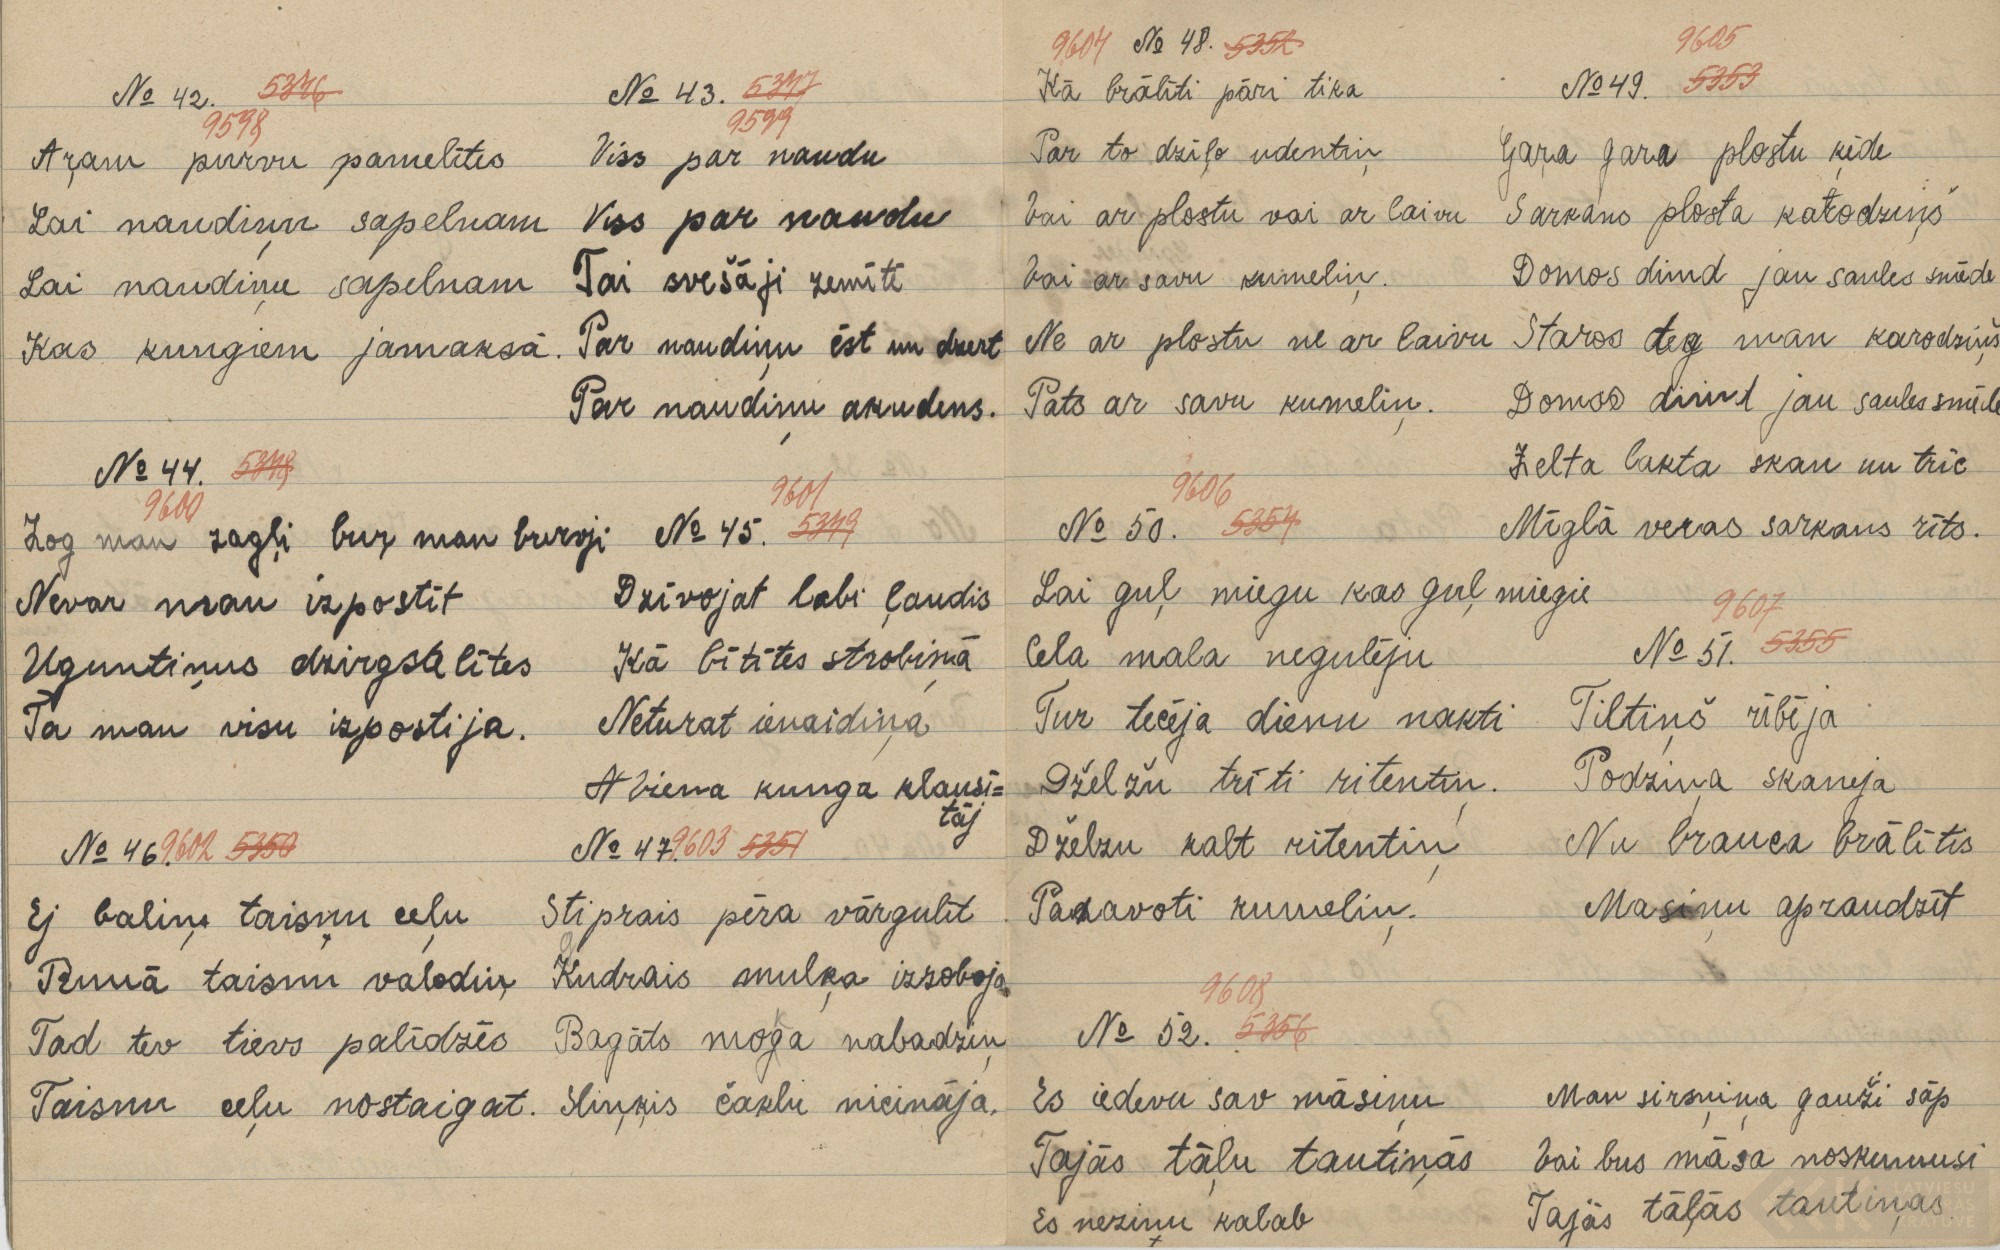 № 42. 5346
9598
Aŗam purvu pamelītes
Lai naudiņu sapelnam
Lai naudiņu sapelnam
Kas kungiem jamaksā.
№ 43. 5347
9599
Viss par naudu
Viss par naudu
Tai svešāji zemītē
Par naudiņu ēst un dzert
Par naudiņu akudens.
№ 44. 5348
9600
Zog man zagļi buŗ man burvji
Nevar man izpostīt
Uguntiņus dzirgstelītes
Ta man visu izpostija.
9601
№ 45. 5349
Dzīvojat labi ļaudis
Kā bītītes strobiņā
Neturat ienaidiņa
A viena kunga klausī=
tāj
№ 46. 9602 5350
Ej baliņ taisņu ceļu
Runā taisnu valodiņ
Tad tev tievs palīdzēs
Taisnu ceļu nostaigat.
№ 47. 9603 5351
Stiprais pēra vārgulīt
Kudrais mulķa izzoboja
Bagāts moga nabadziņ
Sliņķis čaklu nicināja.
9604 № 48. 5352
Kā brālīti pāri tika
Par to dziļo udentiņ
Vai ar plostu vai ar laivu
Vai ar savu kumeliņ.
Ne ar plostu ne ar laivu
Pats ar savu kumeliņ.
9605
№ 49. 5353
Gaŗa gara plostu ķēde
Sarkans plosta karodziņš
Domos dimd jau saules smēde
Staros deg man karodziņš
Domos dimd jau saules smēde
Zelta lakta skan un trīc
Mīglā veras sarkans rīts.
9606
№ 50. 5354
Lai guļ miegu kas guļ miegie
Cela mala negulēju
Tur tecēja dienu nakti
Dželžu trīti ritentiņ.
Dželzu kalt ritentiņ
Pakavoti kumeliņ.
9607
№ 51. 5355
Tiltiņš rībēja
Podziņa skaneja
Nu brauca brālītis
Masiņu apraudzīt
9608
№ 52. 5356
Es iedevu sav māsiņu
Tajās tāļu tautiņās
Es neziņu kalab
Man sirsniņa gauži sāp
Vai bus māsa noskumusi
Tajās tāļās tautiņas